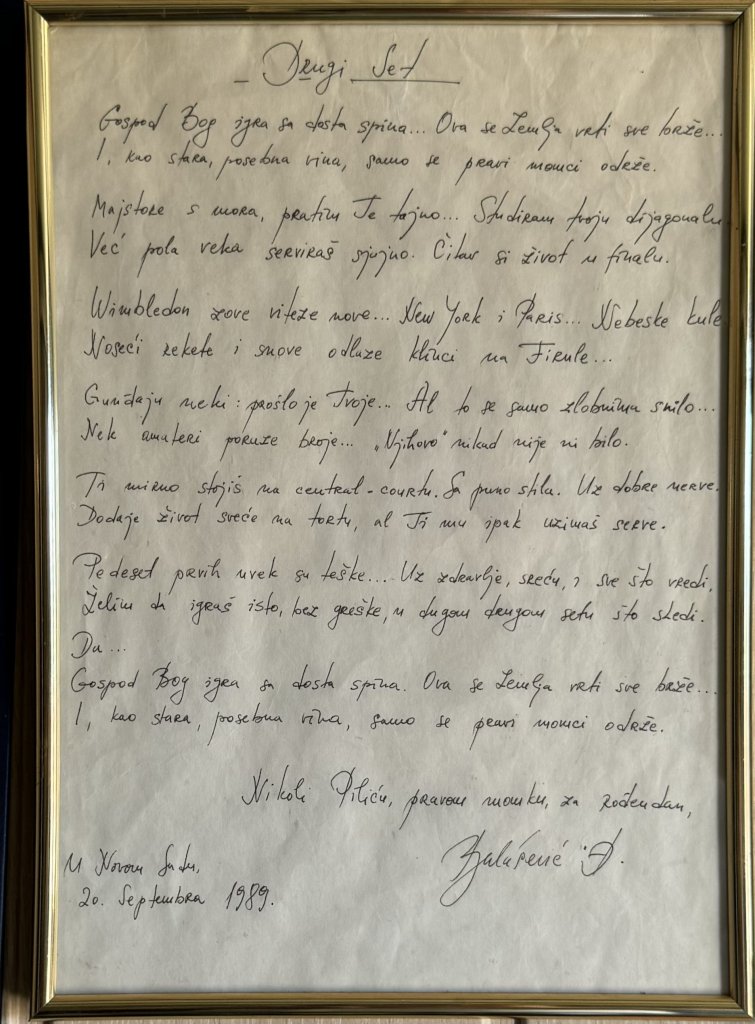 Drugi Set
Gospod Bog igra sa dosta spina... Ova se Zemlja vrti sve brže...
I, kao stara, posebna vina, samo se pravi momci održe.
Majstore s mora, pratim Te tajno... Studiram tvoju dijagonalu
Već pola veka serviraš sjajno. Čitav si život u finalu.
Wimbledon zove viteze nove... New York i Paris... Nebeske kule
Noseći rekete i snove odlaze klinci na Firule...
Gunđaju neki: prošlo je Tvoje... Al to se samo zlobnima snilo...
Nek amateri poraze broje... „Njihovo" nikad nije ni bilo.
Ti mirno stojiš na central-courtu. Sa puno stila. Uz dobre nerve.
Dodaje život sveće na tortu, al Ti mu ipak uzimaš serve.
Pedeset prvih uvek su teške... Uz zdravlje, sreću, i sve što vredi,
Želim da igraš isto, bez greške, u dugom drugom setu što sledi.
Da...
Gospod Bog igra sa dosta spina. Ova se Zemlja vrti sve brže...
I, kao stara, posebna vina, samo se pravi momci održe.
Nikoli Piliću, pravom momku, za rođendan,
Balašević Đ.
U Novom Sadu,
20. Septembra 1989.